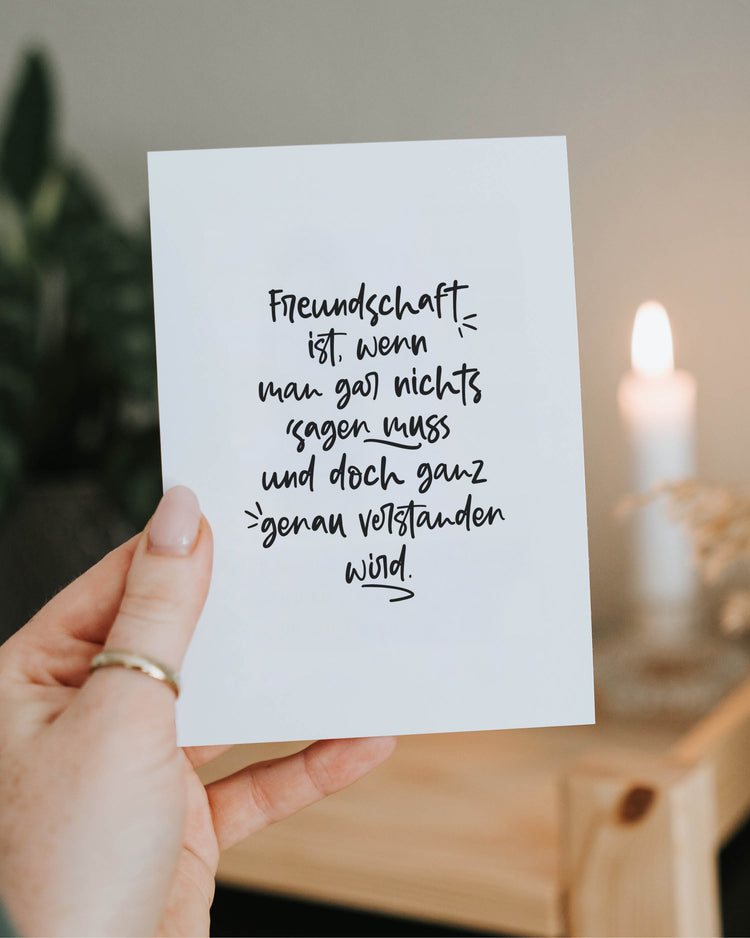 Freundschaft
ist, wenn
man gar nichts
sagen muss
und doch ganz
genau verstanden
wird.